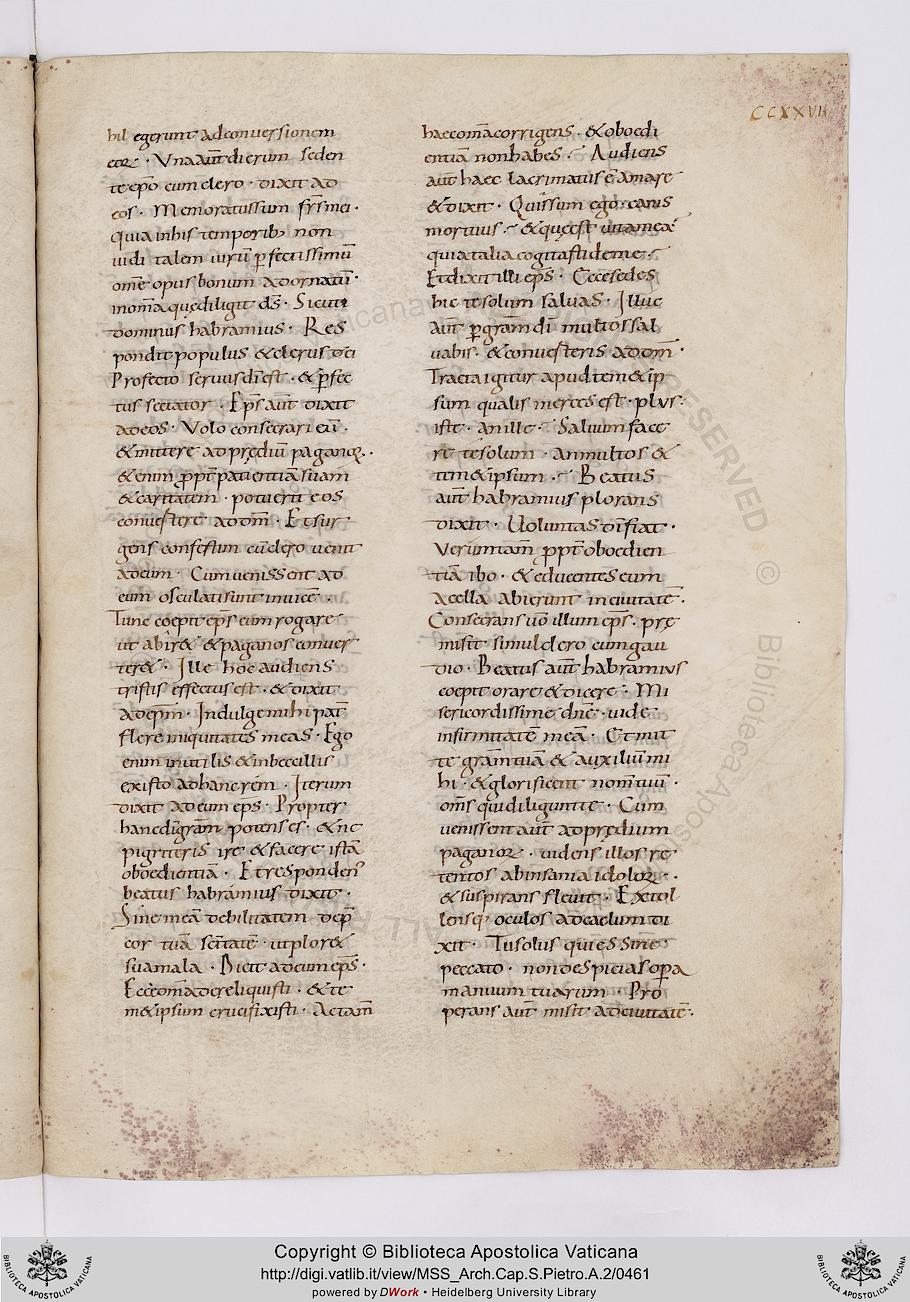 CCXXVII
hil egerunt adconuersionem
eoꝝ · Vna aut̄ dierum seden
te ep̄o cum clero · dixit ad
eos · Memoratissum fr̄s mei ·
Quia inhis temporib; non
uidi talem uirū ꝑfectissimū
om̄e opus bonum adornatū ·
inom̄a quę diligit d̄s · Sicuti
dominus habramius · Res
pondit populus & clerus
Profecto seruus dī est · & ꝑfec
tus sectator · Ep̄s aut̄ dixit
adeos · Volo consecrari eū ·
& mittere ad prędiū paganoꝝ ·
& enim ꝓpt̄ patientiā suam
& caritatem · potuerit eos
conuertere addm̄ · Et sur
gens confestum cū clero uenit
adeum · Cum uenissent ad
eum osculati sunt inuicē ·
Tunc coepit ep̄s eum rogare
ut abir& & paganos conuer
ter& · Ille hoc audiens
tristis effectus est · & dixit
adep̄m · Indulge mihi pat̄
flere iniquitates meas · Ego
enim inutilis & inbecillis
existo adhanc rem · Iterum
dixit adeum ep̄s · Propter
hanc dī gram̄ potens es · & ne
pigriteris ire & facere istā
oboedientiā · Et responden
beatus habramius dixit ·
Sine meā debilitatem dep̄
cor tuā scītatē · ut plor&
sua mala · Dicit adeum ep̄s ·
Ecce om̄a dereliquisti · & te
m&ipsum crucifixisti · Actam̄
haec om̄a corrigens · & oboedi
entiā non habes · Audiens
aut̄ haec lacrimatus ē amare
& dixit · Quis sum ego canis
mortuus · & quę est uita mea
quia talia cogitasti de me ·
Et dixit illi ep̄s · Ecce sedes
hic te solum saluas · Illuc
aut̄ ꝑ gram̄ dī multos sal
uabis · & conuerteris addm̄ ·
Tracta igitur apud tem&ip
sum qualis merces est · plus
iste · an ille · Saluum face
re te solum · an multos &
tem&ipsum · Beatus
aut̄ habramius plorans
dixit · Uoluntas dī fiat ·
Verumtam̄ ꝓpt̄ oboedien
tiā ibo · & educentes eum
acella abierunt inciuitatē ·
Consecrans uō illum ep̄s · prę
misit simul clero cum gau
dio · Beatus aut̄ habramius
coepit orare & dicere · Mi
sericordissime dn̄e · uide
infirmitatē meā · Et mit
te gram̄ tuā & auxiliū mi
hi · & glorificent nom̄ tuū ·
om̄s qui diligunt te · Cum
uenissent aut̄ ad prędium
paganoꝝ · uidens illos re
tentos ab insania idoloꝝ ·
& suspirans fleuit · Extol
lensq; oculos adcaelum di
xit · Tu solus qui es sine
peccato · non despicias oꝑa
manuum tuarum · Pro
perans aut̄ misit adciuitatē ·
Copyright © Biblioteca Apostolica Vaticana
http://digi.vatlib.it/view/MSS_Arch.Cap.S.Pietro.A.2/0461
powered by DWork • Heidelberg University Library